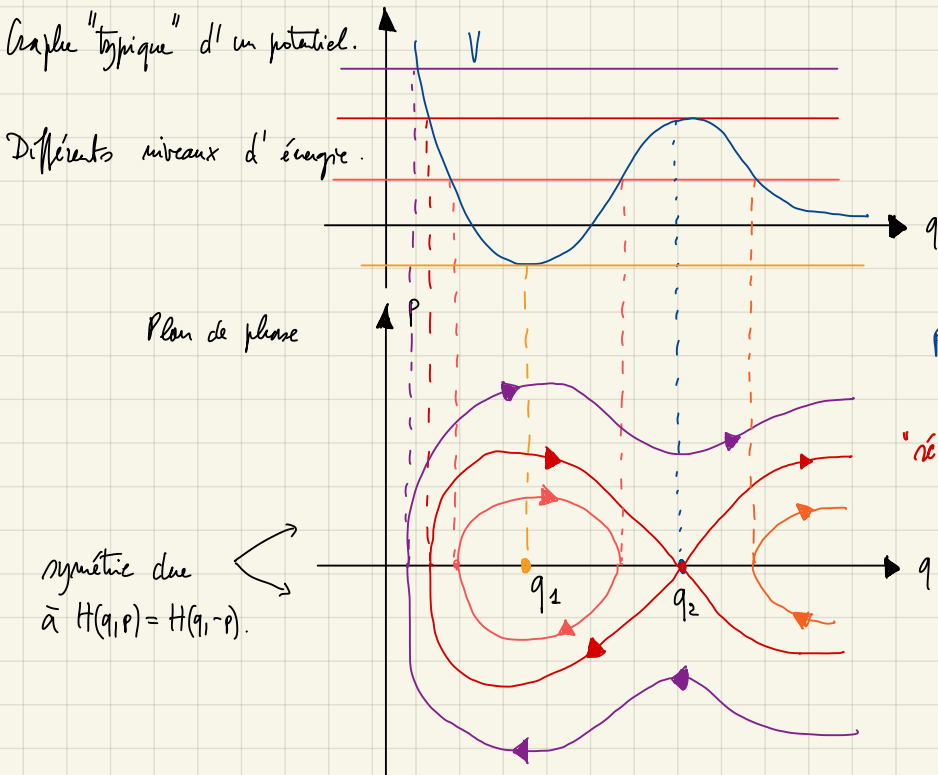 Graphe "typique" d'un potentiel.
V
Différents niveaux d'énergie.
q
P
Plan de phase
"sé
q
q1
q2
symétrie due
à H(q,p) = H(q,-p).